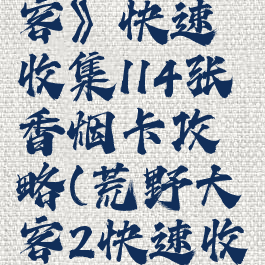 客》快速
收集114张
香烟卡攻
略(荒野大
客2快速收